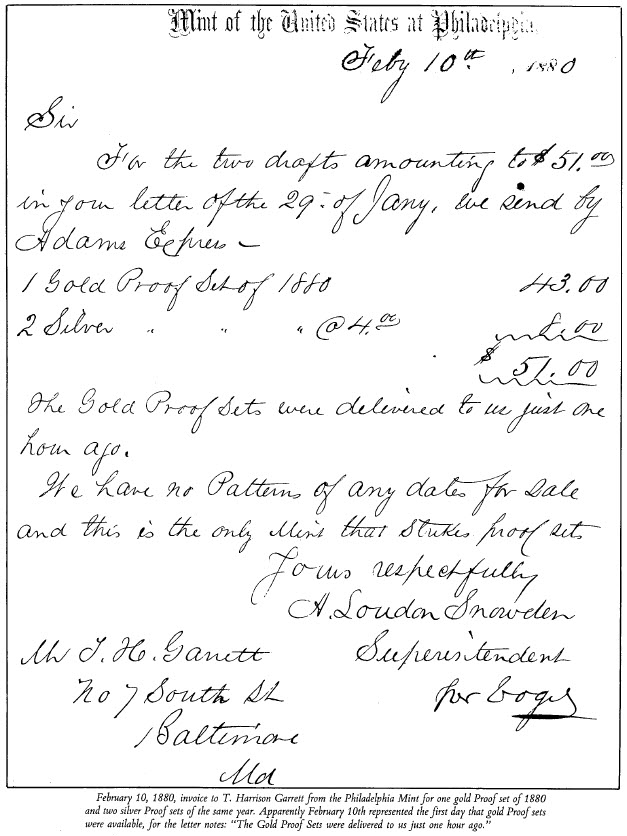 Mint of the United States at Philadelphia.
Feby 10th, 1880
Sir
For the two drafts amounting to $51.00
in your letter of the 29th of Jany, we send by
Adams Express –
1 Gold Proof Set of 1880 43.00
2 Silver " " " @ 4.00 8.00
$ 51.00
The Gold Proof Sets were delivered to us just one
hour ago.
We have no Patterns of any dates for Sale
and this is the only Mint that Strikes proof sets
Yours respectfully
A. Loudon Snowden
Mr T. H. Garrett Superintendent
No 7 South St per
Baltimore
Md
February 10, 1880, invoice to T. Harrison Garrett from the Philadelphia Mint for one gold Proof set of 1880
and two silver Proof sets of the same year. Apparently February 10th represented the first day that gold Proof sets
were available, for the letter notes: "The Gold Proof Sets were delivered to us just one hour ago."